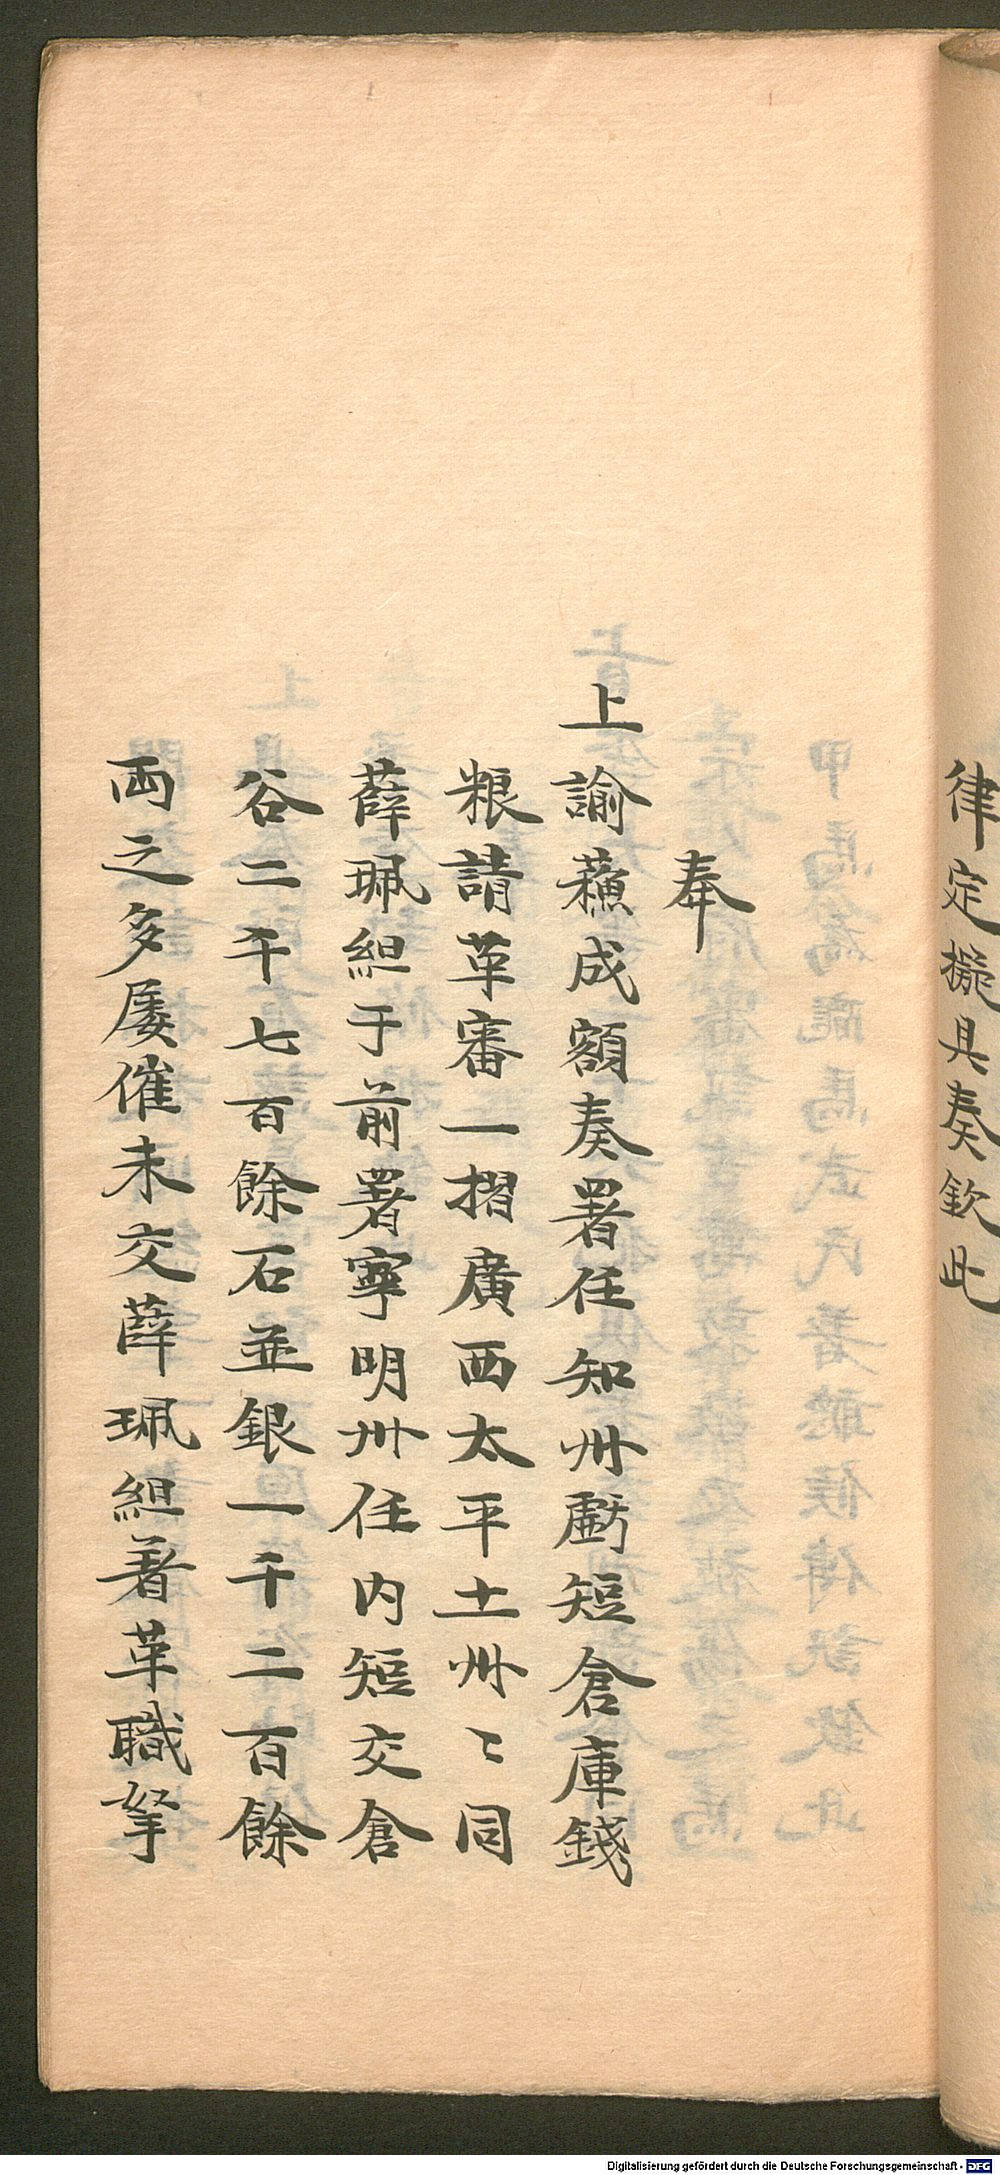 律定擬具奏欽此
奉
上諭蘓成額奏署任知州虧短倉庫錢
粮請革審一摺廣西太平土州〻同
薛珮組于前署寧明州任内短交倉
谷二千七百餘石並銀一千二百餘
両之多屡催未交薛珮組著革職拏
Digitalisierung gefördert durch die Deutsche Forschungsgemeinschaft - DFG